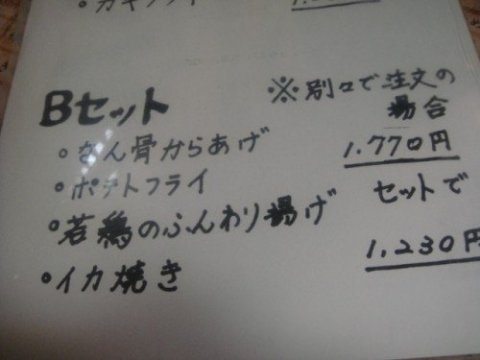 Bセット
※別々で注文の
場合
。なん骨からあげ
1.770円
。ポテトフライ
セットで
。若鶏のふんわり揚げ
1.230円
。イカ焼き